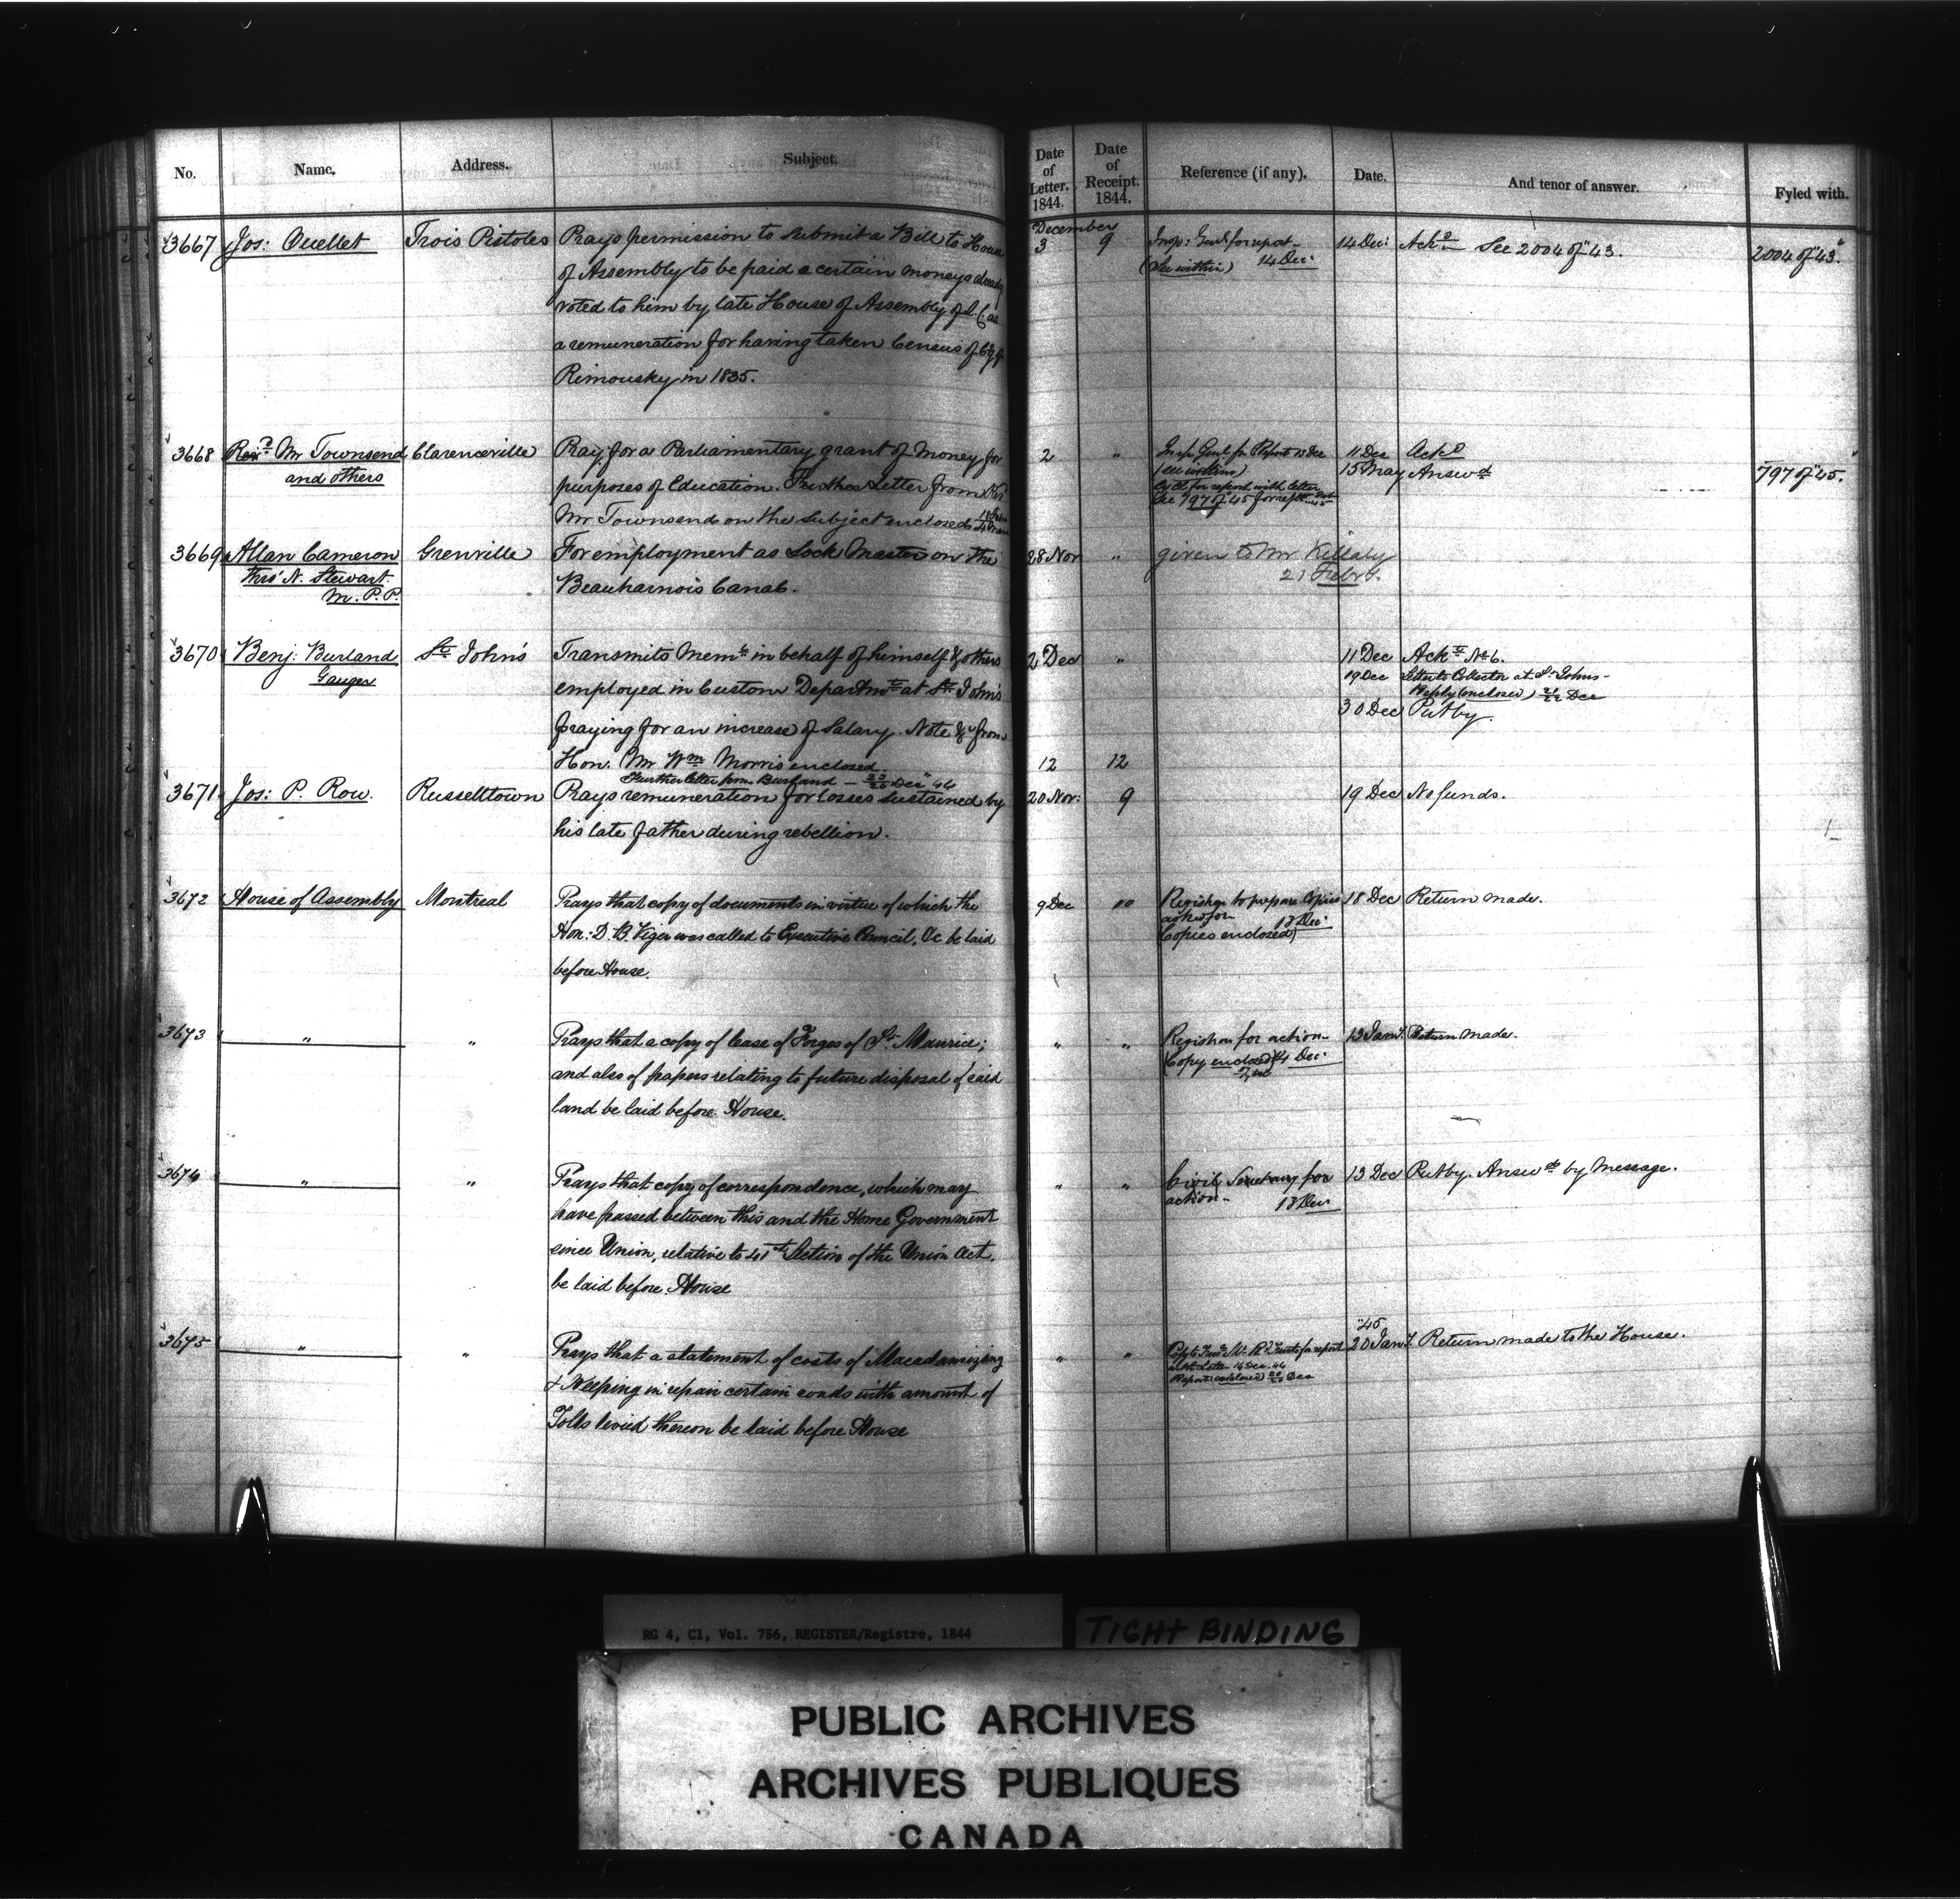 No. Name. Address. Subject. Date of Letter. 1844. Date of Receipt. 1844. Reference (if any). Date. And tenor of answer. Fyled with.
December
3667 Jos: Ouellet Trois Pistoles Prays permission to submit a Bill to House 3 9 Insp: Genl for report 14 Dec: Ackd See 2004 of "43. 2004 of "43."
of Assembly to be paid a certain moneys already (See within) 14 Dec:
voted to him by late House of Assembly of L. C. as
a remuneration for having taken Census of Cy of
Rimousky in 1835.
3668 Revd Mr Townsend Clarenceville Pray for a Parliamentary grant of Money for 2 " Insp. Genl. for Report 13 Dec 11 Dec Ackd
and others purposes of Education. Further Letter from Revd (see within) 15 May Answd 797 of "45."
Mr Townsend on the Subject enclosed for report with letter
See 797 of "45 for
3669 Allan Cameron Grenville For employment as Lock Master on the 28 Nov " given to Mr Killaly
thro' N. Stewart Beauharnois Canal. 21 Feby.
M. P. P.
3670 Benj: Burland St John's Transmits Meml in behalf of himself & others 2 Dec " 11 Dec Ackd No 6.
Gauger employed in Custom Departmt at St John's 19 Dec Letter to Collector at St Johns-
Reply (enclosed) 21/22 Dec
praying for an increase of Salary. Note &c from 30 Dec Put by.
Hon. Mr Wm Morris enclosed. 12 12
Further letter from Burland Dec "44
3671 Jos: P. Row. Russelltown Prays remuneration for losses sustained by 20 Nov: 9 19 Dec No funds.
his late father during rebellion.
3672 House of Assembly Montreal Prays that copy of documents in virtue of which the 9 Dec " Registrar to prepare Copies 18 Dec Return made.
Hon: D. B. Viger was called to Executive Council, &c be laid asked for 13 Dec:
before House. (Copies enclosed)
3673 " " Prays that a copy of lease of Forges of St Maurice; " " Registrar for action- 13 Jany. Return made.
and also of papers relating to future disposal of said (Copy enclosed) 14 Dec:
land be laid before House.
3674 " " Prays that copy of correspondence, which may " " Civil Secretary for 13 Dec Put by. Answd by message.
have passed between this and the Home Government action- 13 Dec
since Union, relative to 41st Section of the Union Act,
be laid before House
"45
3675 " " Prays that a statement of costs of Macadamizing " " for report 20 Jany. Return made to the House.
& Keeping in repair certain roads with amount of 14 Dec. 44
Tolls levied thereon be laid before House Report enclosed Dec
RG 4, C1, Vol. 756, REGISTER/Registre, 1844
TIGHT BINDING
PUBLIC ARCHIVES
ARCHIVES PUBLIQUES
CANADA